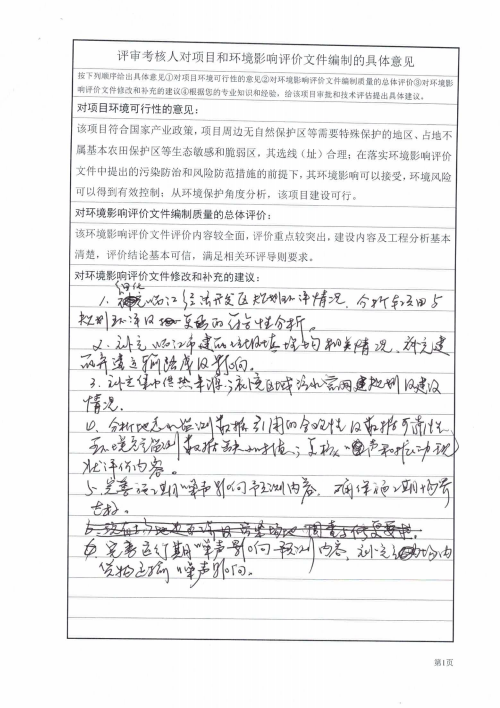 评审考核人对项目和环境影响评价文件编制的具体意见
按下列顺序给出具体意见①对项目环境可行性的意见②对环境影响评价文件编制质量的总体评价③对环境影
响评价文件修改和补充的建议④根据您的专业知识和经验，给该项目审批和技术评估提出具体建议。
对项目环境可行性的意见：
该项目符合国家产业政策，项目周边无自然保护区等需要特殊保护的地区、占地不
属基本农田保护区等生态敏感和脆弱区，其选线（址）合理；在落实环境影响评价
文件中提出的污染防治和风险防范措施的前提下，其环境影响可以接受，环境风险
可以得到有效控制；从环境保护角度分析，该项目建设可行。
对环境影响评价文件编制质量的总体评价：
该环境影响评价文件评价内容较全面，评价重点较突出，建设内容及工程分析基本
清楚，评价结论基本可信，满足相关环评导则要求。
对环境影响评价文件修改和补充的建议：
细化
1. 临江经济开发区规划环评情况，分析项目与
规划环评及 的符合性分析。
2. 补充临江市建 垃圾填埋场相关情况，补充建
运输路线及影响。
3. 补充集中供热来源；该区域污水管网建规划及建设
情况。
4. 分析地 监测数据引用的合理性及数据可靠性
环境 监测数据 ；复核 声和振动现
状评价内容。
5. 完善施工期噪声影响预测内容，确保施工期场界
达标。
6. 完善运行期噪声影响预测内容，补充 场内
货物运输噪声影响。
第1页